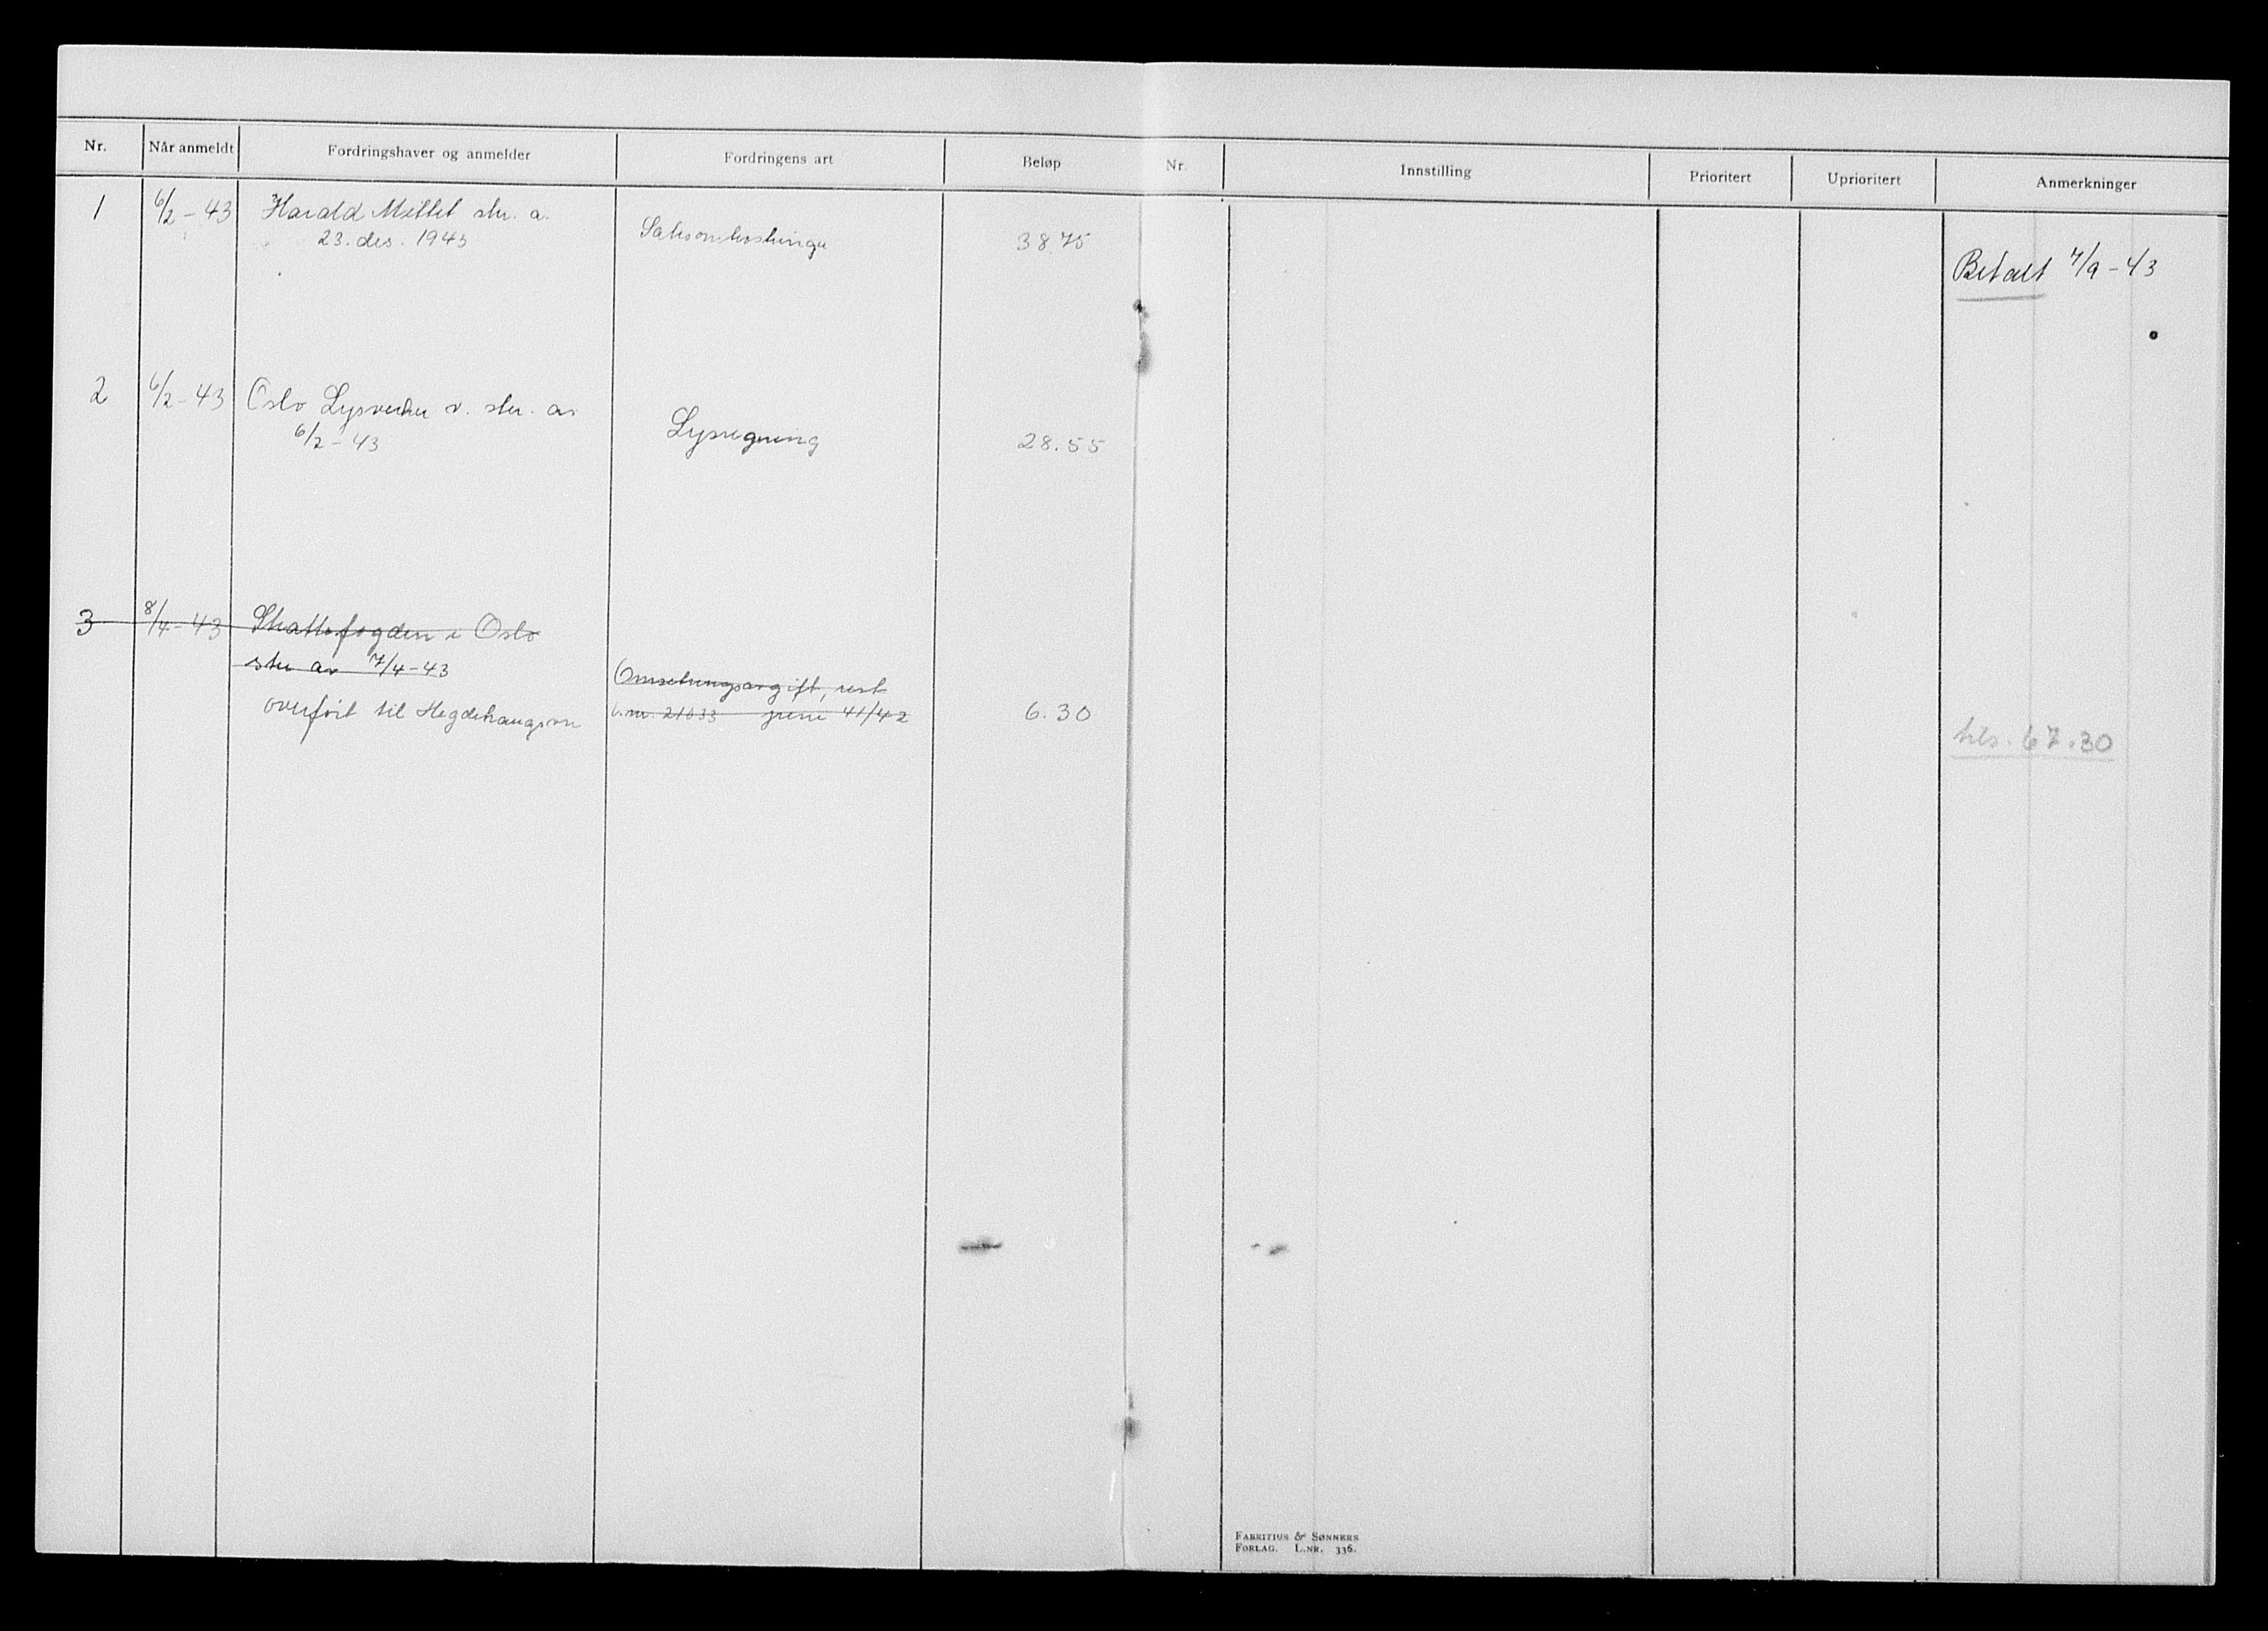 Nr. Når anmeldt Fordringshaver og anmelder Fordringens art Beløp Nr. Innstilling Prioritert Uprioritert Anmerkninger
1 6/2-43 Harald Mittet skr. a.
23. des. 1943 Saksomkostninger 38.75
Betalt 7/9-43
2 6/2-43 Oslo Lysverker v. skr. av
6/2-43 Lysregning 28.55
3 8/4-43 Skattefogden i Oslo
skr av 7/4-43
Omsetningsavgift, rest
overført til Hegdehaugsvn 21633 41/42 6.30
67.30
FABRITIUS & SØNNERS
FORLAG. L.NR. 336.